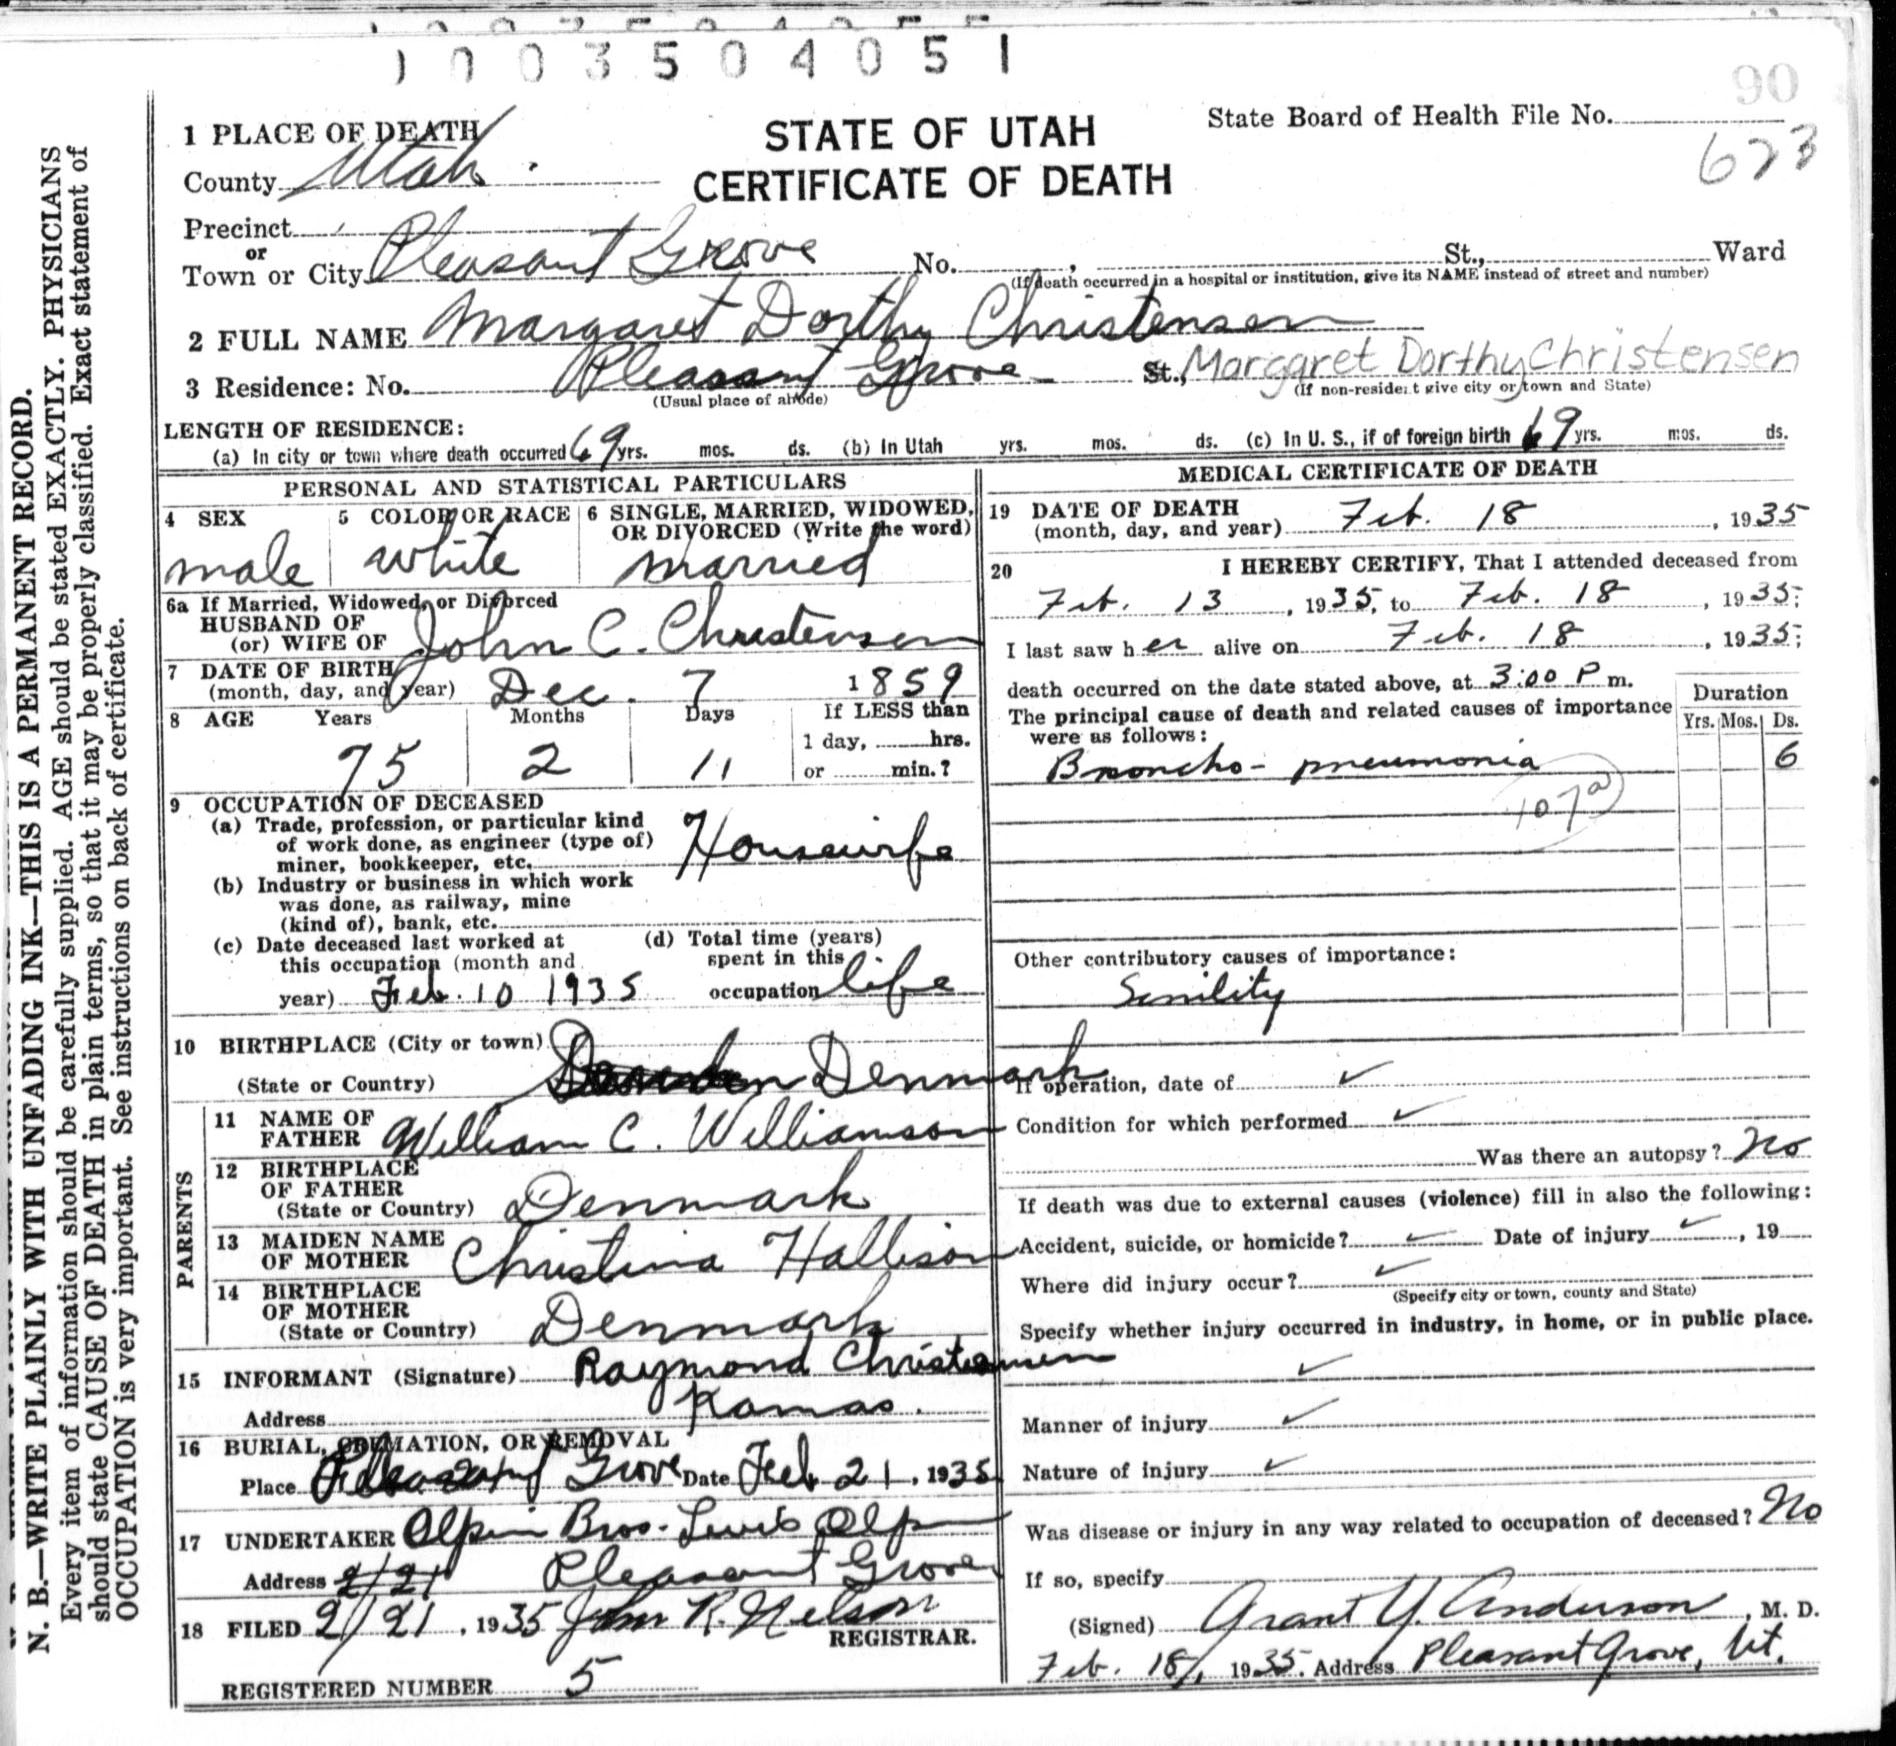 1003504051
90
1 PLACE OF DEATH
STATE OF UTAH
CERTIFICATE OF DEATH
State Board of Health File No.
623
County Utah
Precinct
or
Town or City Pleasant Grove No. , St., Ward
(If death occurred in a hospital or institution, give its NAME instead of street and number)
2 FULL NAME Margaret Dorthy Christensen
3 Residence: No. Pleasant Grove St., Margaret Dorthy Christensen
(Usual place of abode) (If non-resident give city or town and State)
LENGTH OF RESIDENCE:
(a) In city or town where death occurred 69 yrs. mos. ds. (b) In Utah yrs. mos. ds. (c) In U. S., if of foreign birth 69 yrs. mos. ds.
PERSONAL AND STATISTICAL PARTICULARS
4 SEX 5 COLOR OR RACE 6 SINGLE, MARRIED, WIDOWED, OR DIVORCED (Write the word)
male white married
6a If Married, Widowed, or Divorced
HUSBAND OF
(or) WIFE OF John C. Christensen
7 DATE OF BIRTH
(month, day, and year) Dec. 7 1859
8 AGE Years Months Days If LESS than
1 day, hrs.
75 2 11 or min.?
9 OCCUPATION OF DECEASED
(a) Trade, profession, or particular kind
of work done, as engineer (type of)
miner, bookkeeper, etc. Housewife
(b) Industry or business in which work
was done, as railway, mine
(kind of), bank, etc.
(c) Date deceased last worked at (d) Total time (years)
this occupation (month and spent in this
year) Feb. 10 1935 occupation life
10 BIRTHPLACE (City or town)
(State or Country) Denmark
PARENTS
11 NAME OF
FATHER William C. Williamson
12 BIRTHPLACE
OF FATHER
(State or Country) Denmark
13 MAIDEN NAME
OF MOTHER Christina Hallison
14 BIRTHPLACE
OF MOTHER
(State or Country) Denmark
15 INFORMANT (Signature) Raymond Christensen
Address Kamas.
16 BURIAL, CREMATION, OR REMOVAL
Place Pleasant Grove Date Feb 21, 1935
17 UNDERTAKER Olpin Bros. Lewis Olpin
Address 2/21 Pleasant Grove
18 FILED 2/21, 1935 John R. Nelson
REGISTRAR.
REGISTERED NUMBER 5
MEDICAL CERTIFICATE OF DEATH
19 DATE OF DEATH
(month, day, and year) Feb. 18, 1935
20 I HEREBY CERTIFY, That I attended deceased from
Feb. 13, 1935, to Feb. 18, 1935;
I last saw her alive on Feb. 18, 1935;
death occurred on the date stated above, at 3:00 P m.
The principal cause of death and related causes of importance
were as follows:
Duration
Yrs. Mos. Ds.
Broncho-pneumonia 6
107a
Other contributory causes of importance:
Senility
If operation, date of ✓
Condition for which performed ✓
Was there an autopsy? No
If death was due to external causes (violence) fill in also the following:
Accident, suicide, or homicide? ✓ Date of injury ✓, 19
Where did injury occur? ✓
(Specify city or town, county and State)
Specify whether injury occurred in industry, in home, or in public place.
✓
Manner of injury ✓
Nature of injury ✓
Was disease or injury in any way related to occupation of deceased? No
If so, specify
(Signed) Grant Y. Anderson, M. D.
Feb. 18, 1935. Address Pleasant Grove, Ut.
N. B.—WRITE PLAINLY WITH UNFADING INK—THIS IS A PERMANENT RECORD.
Every item of information should be carefully supplied. AGE should be stated EXACTLY. PHYSICIANS
should state CAUSE OF DEATH in plain terms, so that it may be properly classified. Exact statement of
OCCUPATION is very important. See instructions on back of certificate.